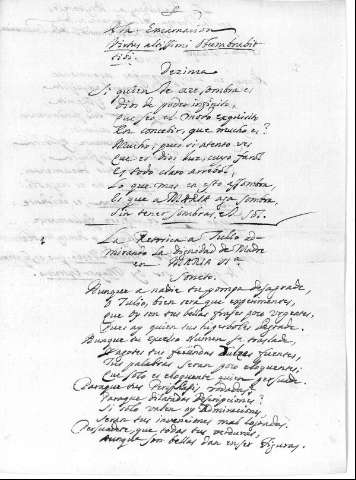 A la Encarnacion
Virtus altissimi obumbrabit
tibi.
Dezima
Si quien te haze sombra es
Dios de poder infinito,
que sea el modo exquisito
en concebir, que mucho es?
Mucho, pues si atento ves
que es Dios luz, cuyo farol
es todo claro arrebol,
lo que mas en esto assombra,
es que a MARIA aga sombra,
sin tener sombras, el sol.
La Retorica a Tulio ad-
mirando la dignidad de Madre
en MARIA SSma
Soneto.
Aunque a nadie tu pompa desagrade,
O Tulio, bien será que experimentes,
que oy son tus bellas frases poco urgentes,
pues ay quien tus hyperboles degrade.
Aunque tu excelso Numen se traslade,
tus fecundas dulzes fuentes,
tus palabras seran poco eloquentes;
que solo es eloquente quien persuade.
Paraque tus Periphrasis, rodados?
Paraque dilatadas descripciones?
Si solo valen oy Admiraciones,
seran tus invenciones mal logradas.
Persuadete, que todas tus verduras,
aunque son bellas dan en ser figuras.